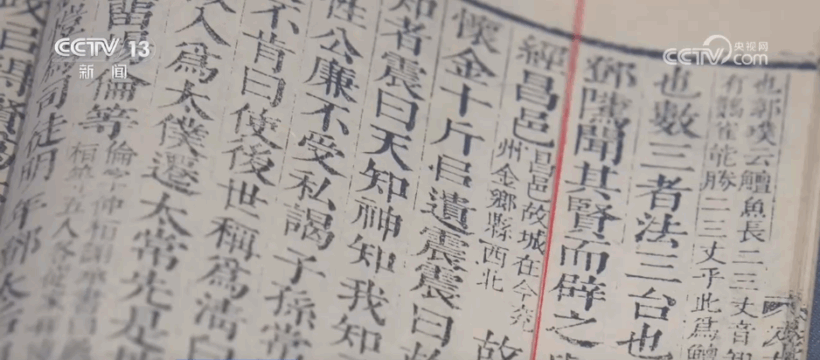 CCTV 13
新闻
CCTV 央视网
.com
也郭璞云鱣魚長二三丈音
有鸛雀能勝二三丈乎此為
也數三者法三台也
鄧騭聞其賢而辟之
經昌邑
昌邑故城在今兗
州金鄉縣西北
故
懷金十斤㠯遺震震曰故
知者震曰天知神知我知
性公廉不受私謁子孫常
不肯曰使後世稱為清白
入為太僕遷太常先是
留陽倫等
為司徒明年鄧太后